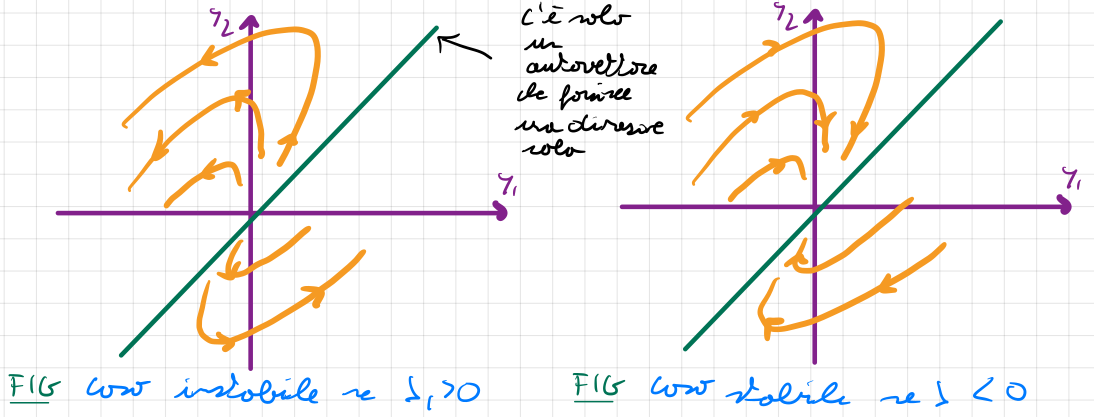 y₂
c'è solo
un
autovettore
che fornisce
una direzione
solo
y₁
y₂
y₁
FIG caso instabile se λ₁>0
FIG caso stabile se λ <0